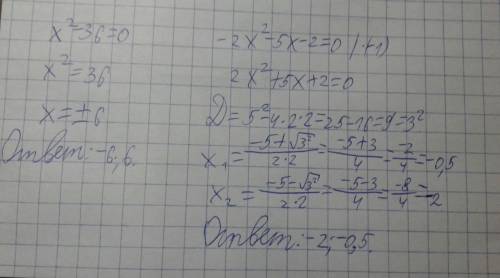 x²-36=0
x²=36
x=±6
Ответ: -6; 6.
-2x²-5x-2=0 /·(-1)
2x²+5x+2=0
D=5²-4·2·2=25-16=9=3²
x₁=(-5+√3²)/(2·2)=(-5+3)/4=-2/4=-0,5
x₂=(-5-√3²)/(2·2)=(-5-3)/4=-8/4=-2
Ответ: -2; -0,5.